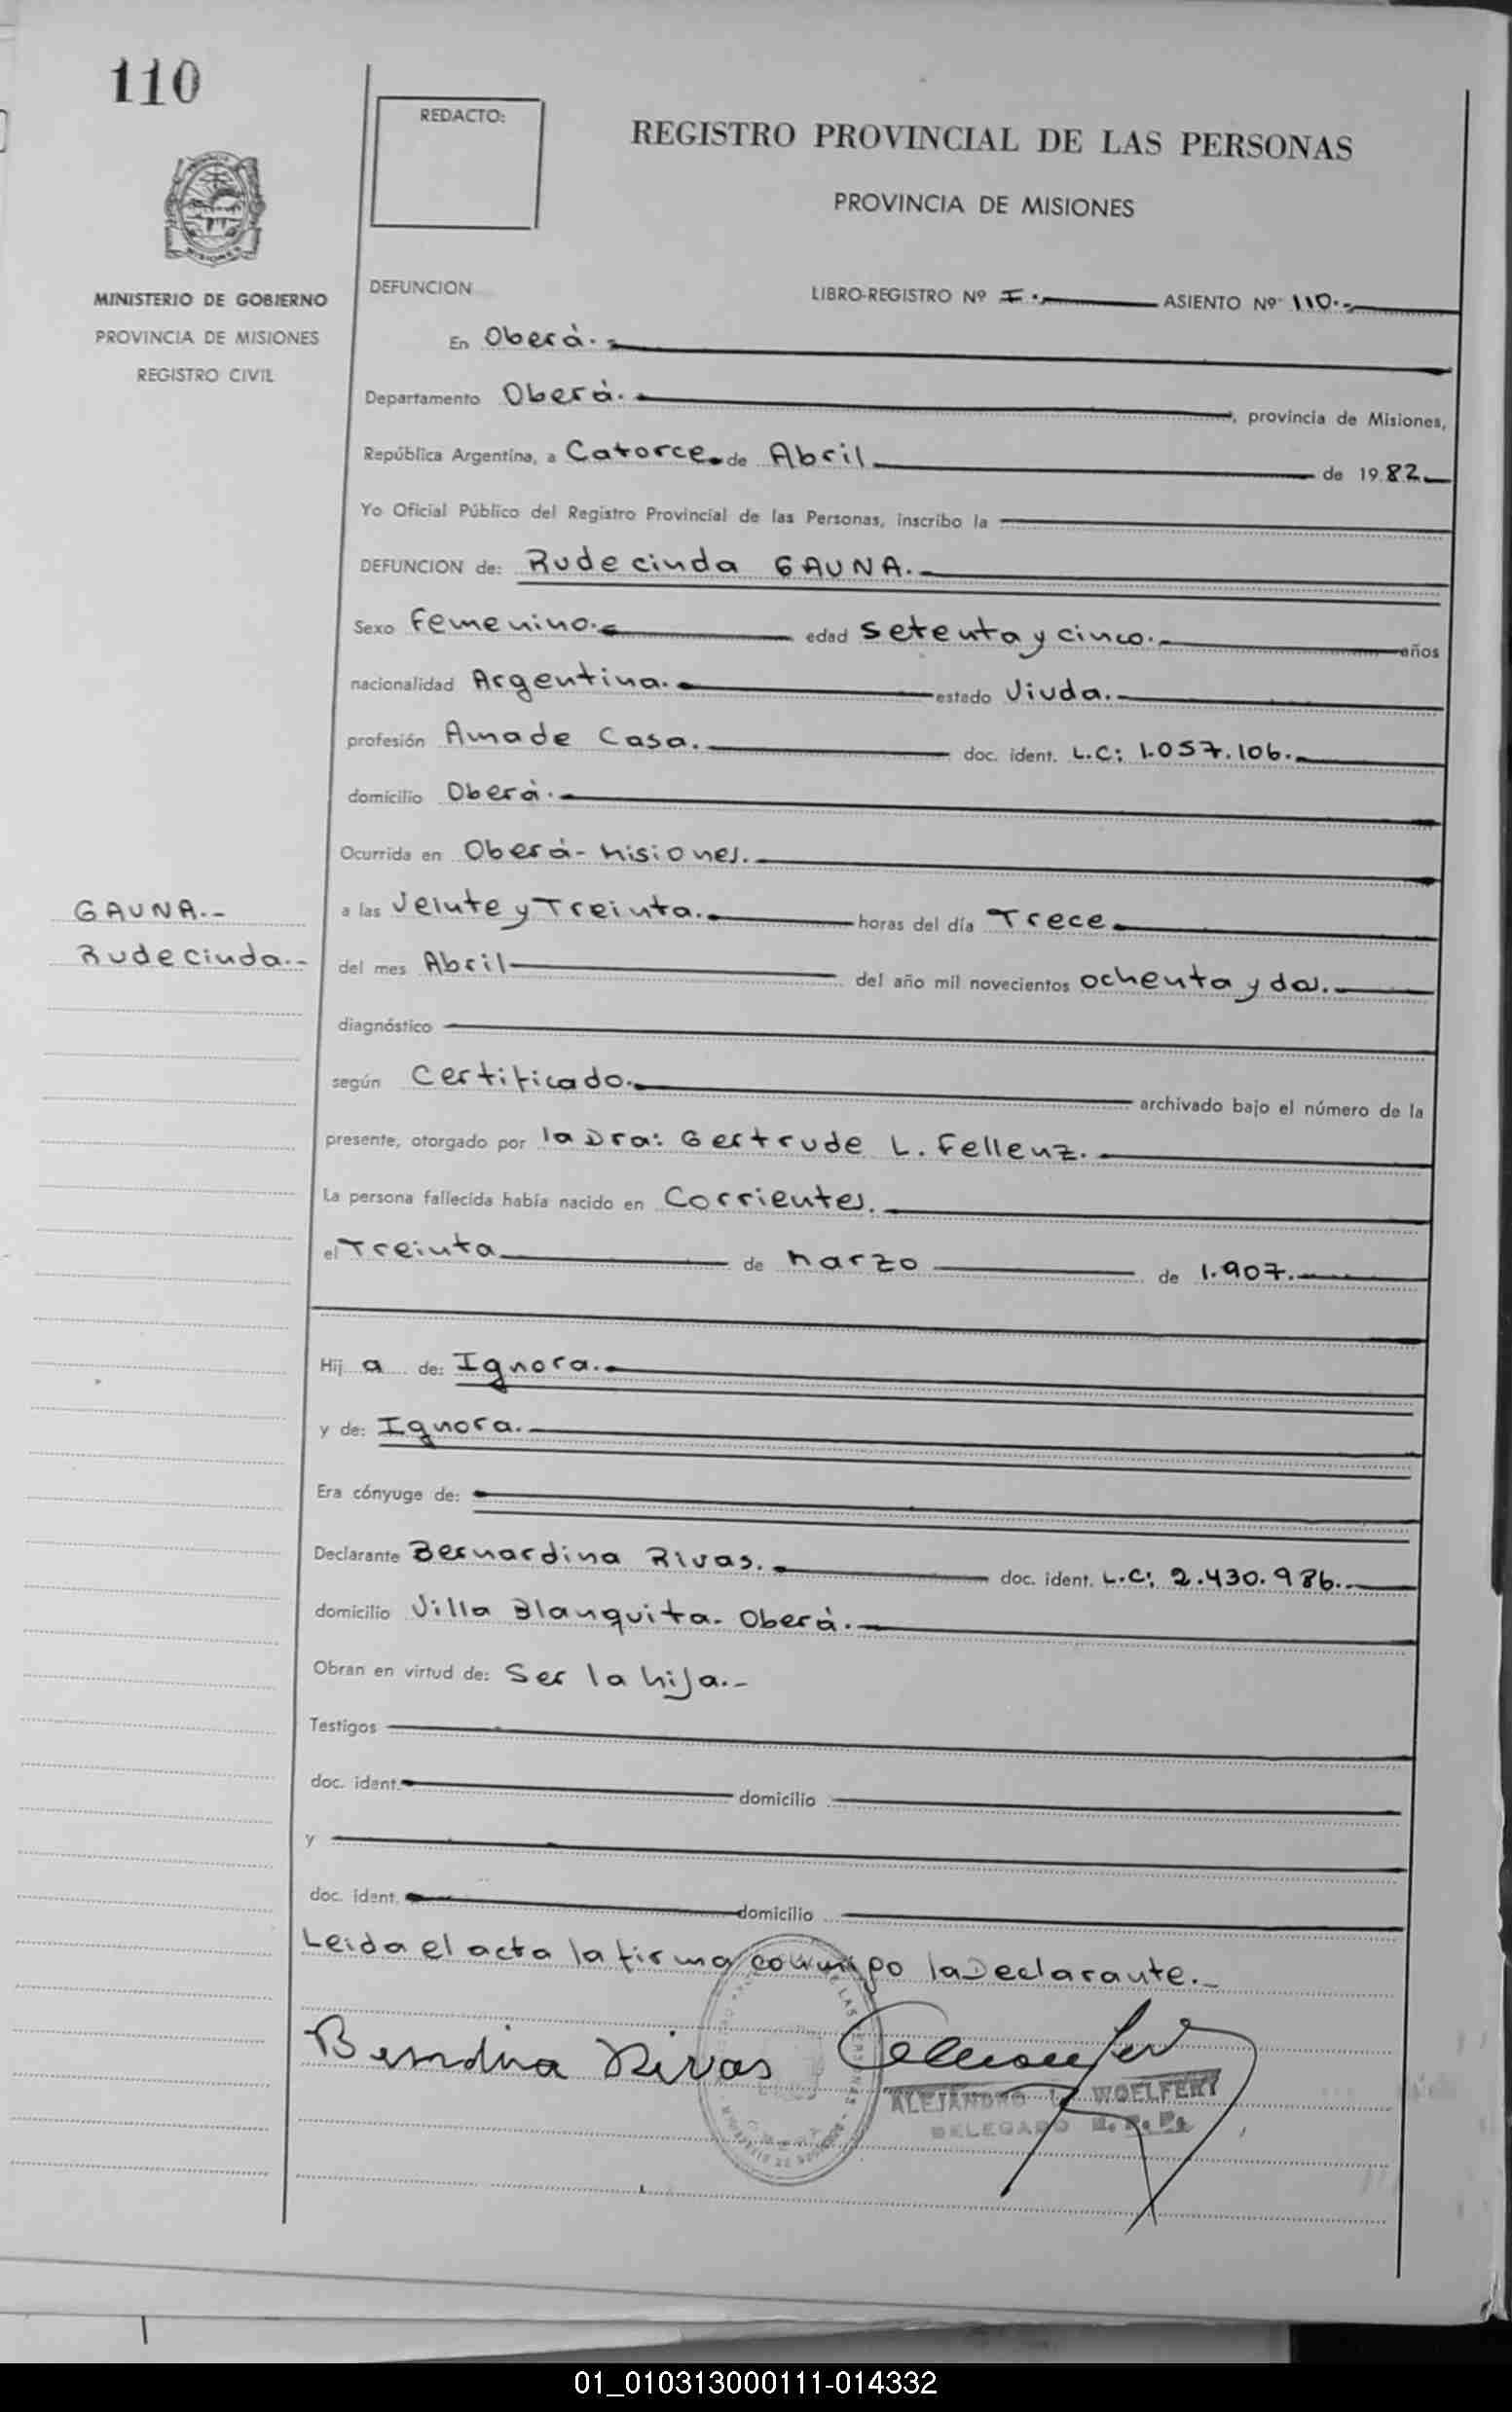 110
REDACTO:
REGISTRO PROVINCIAL DE LAS PERSONAS
PROVINCIA DE MISIONES
MISIONES
MINISTERIO DE GOBIERNO
PROVINCIA DE MISIONES
REGISTRO CIVIL
DEFUNCION
LIBRO-REGISTRO Nº I.- ASIENTO Nº 110.-
En Oberà.-
Departamento Oberà.- , provincia de Misiones,
República Argentina, a Catorce de Abril de 1982
Yo Oficial Público del Registro Provincial de las Personas, inscribo la
DEFUNCION de: Rudecinda GAUNA.-
Sexo Femenino.- edad Setenta y cinco.- años
nacionalidad Argentina.- estado Viuda.-
profesión Ama de Casa.- doc. ident. L.C: 1.057.106.-
domicilio Oberà.-
Ocurrida en Oberà-Misiones.-
GAUNA.-
Rudecinda.-
a las Veinte y Treinta.- horas del día Trece
del mes Abril del año mil novecientos ochenta y dos.-
diagnóstico
según Certificado.- archivado bajo el número de la
presente, otorgado por la Dra: Gertrude L. Fellenz.-
La persona fallecida había nacido en Corrientes.-
el Treinta de Marzo de 1.907.-
Hij a de: Ignora.-
y de: Ignora.-
Era cónyuge de:
Declarante Bernardina Rivas.- doc. ident. L.C: 2.430.986.-
domicilio Villa Blanquita- Oberà.-
Obran en virtud de: Ser la hija.-
Testigos
doc. ident. domicilio
y
doc. ident. domicilio
Leida el acta la firma conmigo la Declarante.-
Rivas
ALEJANDRO WOELFERT
DELEGADO R. P. P.
01_010313000111-014332